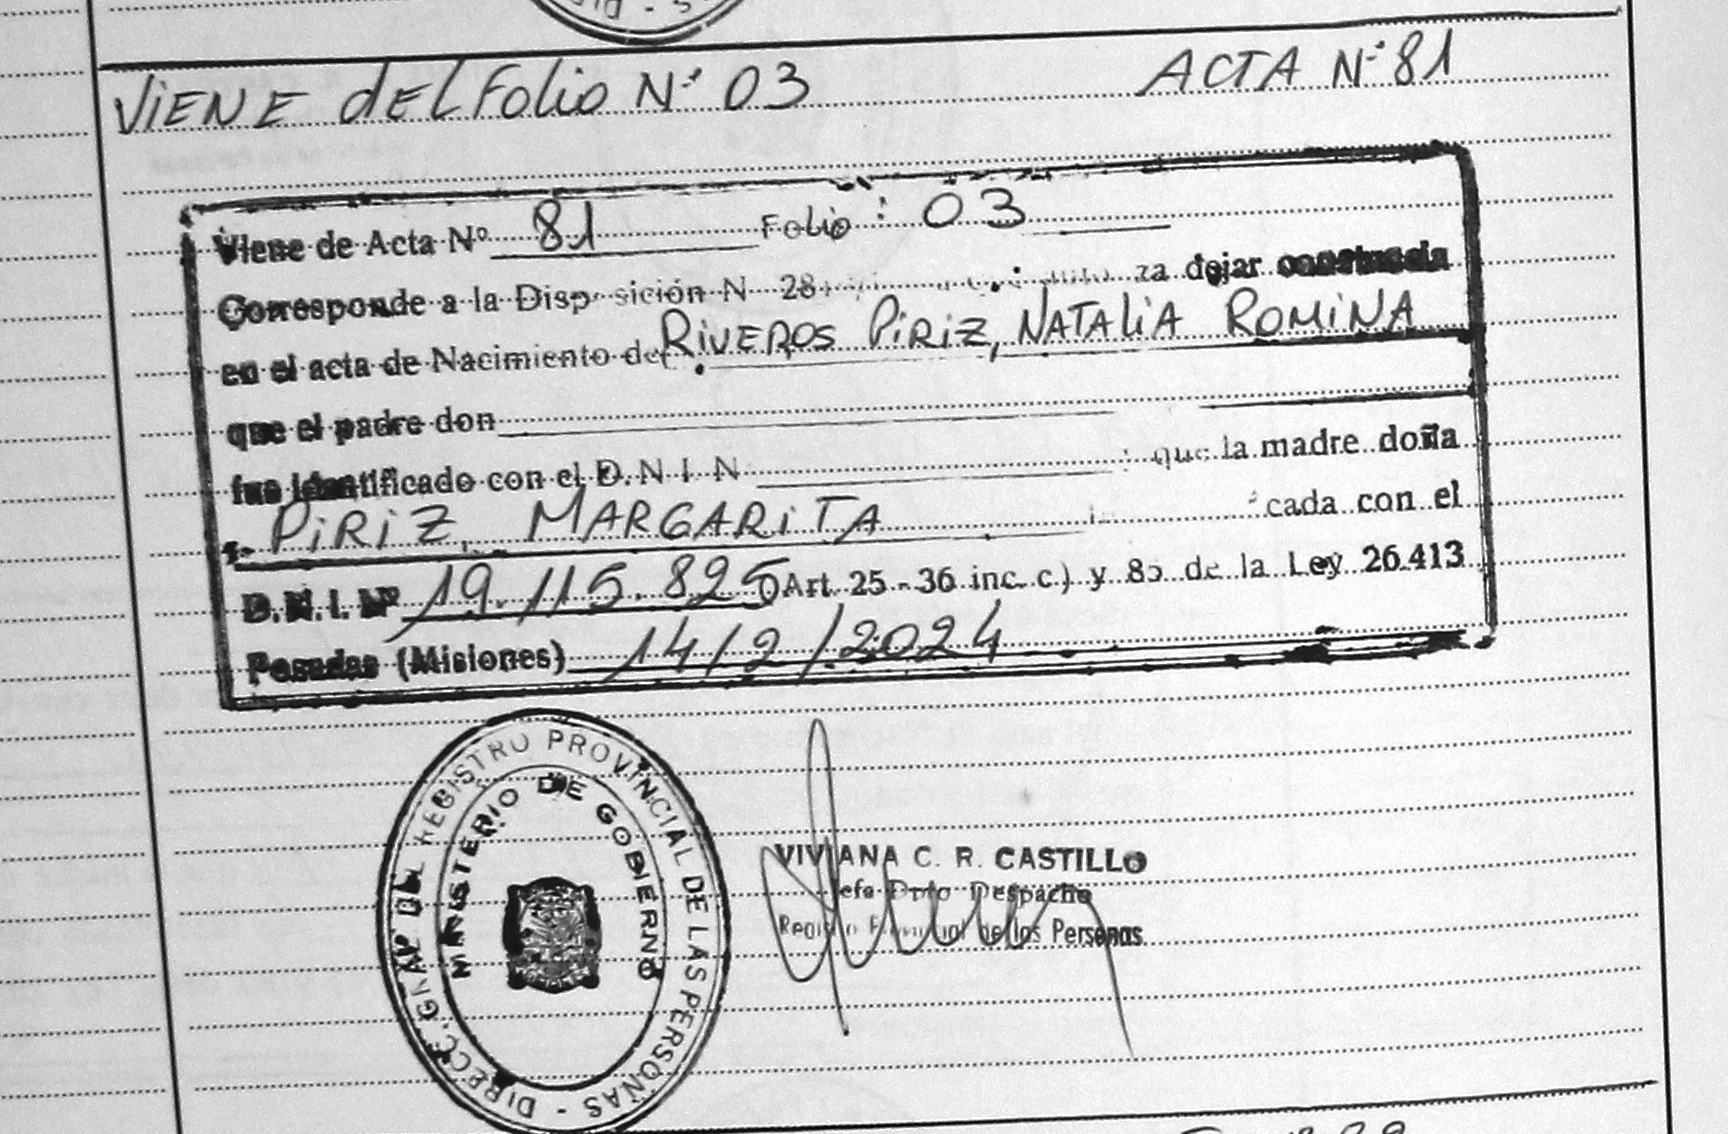 VIENE dEL Folio Nº 03 ACTA Nº 81
Viene de Acta Nº 81 Folio: 03
Corresponde a la Disposición N 28 dejar constancia
en el acta de Nacimiento de RIVEROS PIRIZ, NATALIA ROMINA
que el padre don
fue identificado con el D.N.I N que la madre doña
PIRIZ, MARGARITA cada con el
D.N.I. Nº 19.115.825 Art. 25-36 inc. c) y 85 de la Ley 26.413
Posadas (Misiones) 14/2/2024
DIRECC. GRAL. DEL REGISTRO PROVINCIAL DE LAS PERSONAS
MINISTERIO DE GOBIERNO
VIVIANA C. R. CASTILLO
Jefa Dpto Despacho
Registro Provincial de las Personas